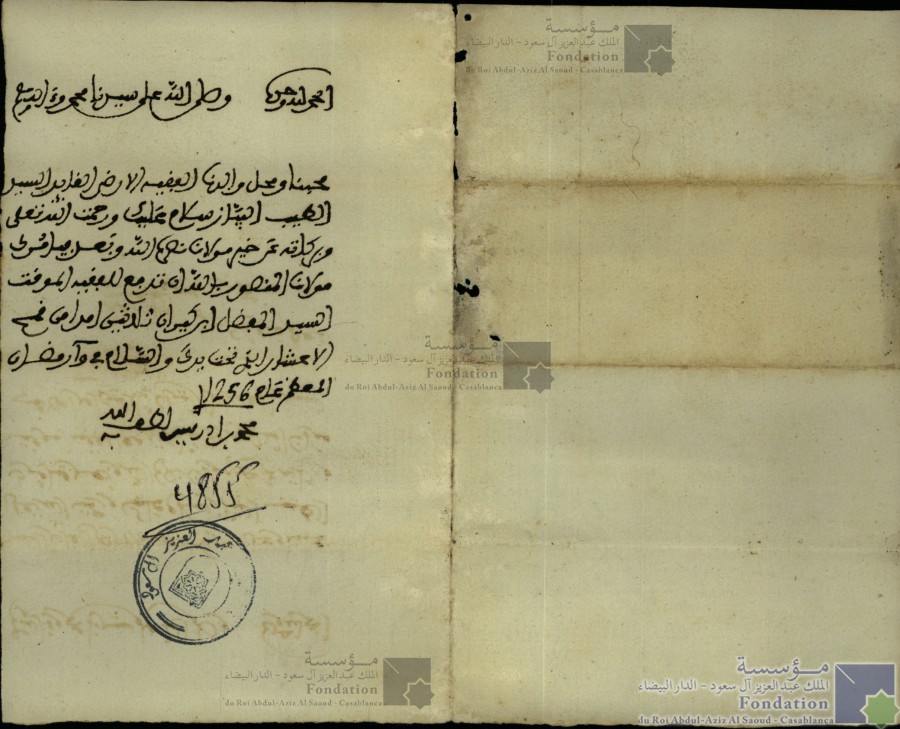 الحمد لله وحده وصلى الله على سيدنا محمد وآله
محبنا ومحل والدنا الفقيه الارضى القايد السيد
الطيب البياز سلام عليك ورحمت الله تعلى
وبركاته عن خير مولانا نصره الله وبعد
مولانا المنصور بالله ان تدفع للفقيه الموقت
السيد المفضل ابن كيران ثلاثين امدا من قمح
الاعشار التي تحت يدك والسلام في رمضان
المعظم عام 1256
محمد بن ادريس لطف الله به
4855
عبد العزيز آل سعود
مؤسسة
الملك عبد العزيز آل سعود - الدار البيضاء
Fondation
du Roi Abdul-Aziz Al Saoud - Casablanca
مؤسسة
الملك عبد العزيز آل سعود - الدار البيضاء
Fondation
du Roi Abdul-Aziz Al Saoud - Casablanca
مؤسسة
الملك عبد العزيز آل سعود - الدار البيضاء
Fondation
du Roi Abdul-Aziz Al Saoud - Casablanca
مؤسسة
الملك عبد العزيز آل سعود - الدار البيضاء
Fondation
du Roi Abdul-Aziz Al Saoud - Casablanca